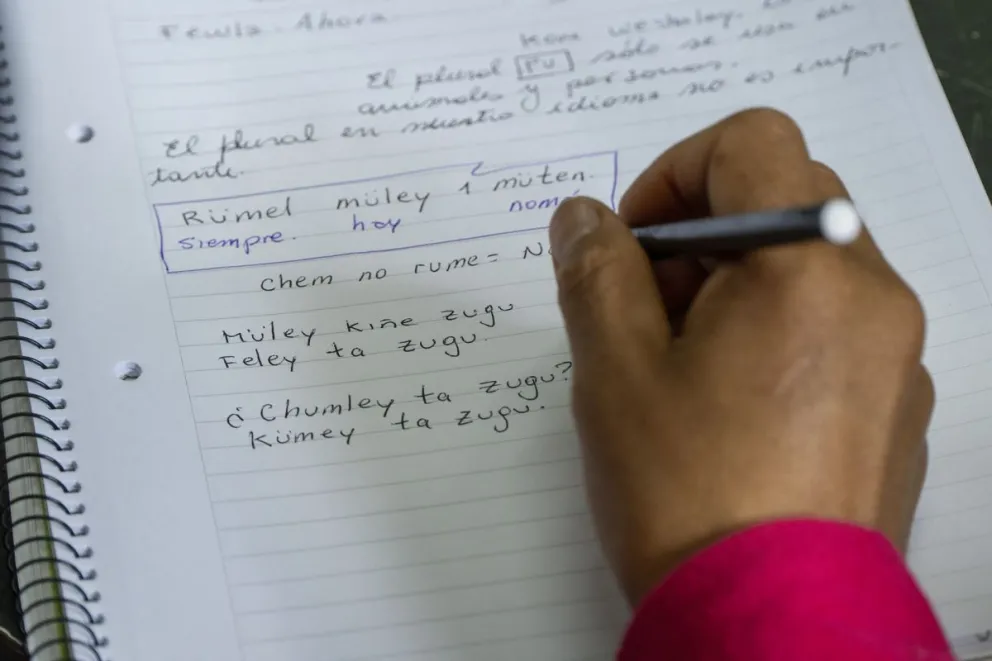 Fewla - Ahora
El plural Pu sólo se usa en
animales y personas.
El plural en nuestro idioma no es impor-
tante.
Rümel müley 1 müten.
siempre. hoy nomá
chem no rume = N
Müley kiñe zugu
Feley ta zugu.
¿Chumley ta zugu?
Kümey ta zugu.